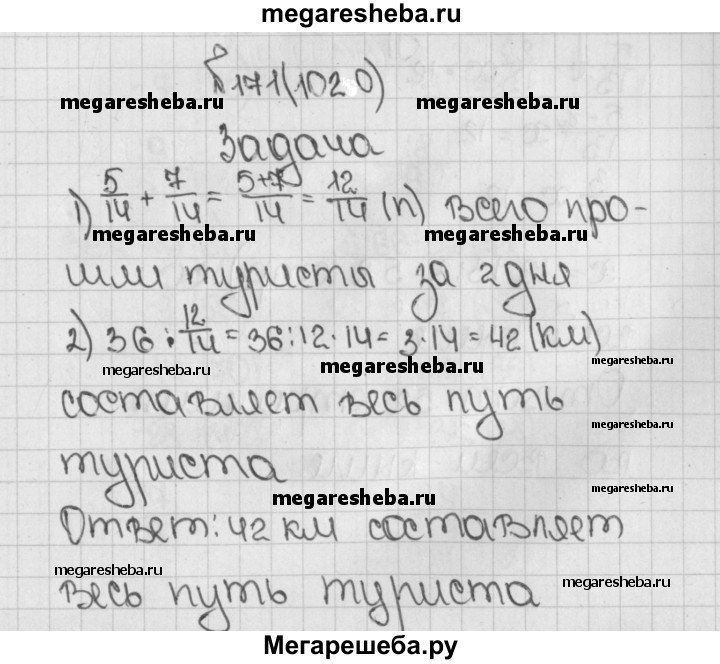 megaresheba.ru
№171(1020)
megaresheba.ru megaresheba.ru
Задача
1) 5/14 + 7/14 = 5+7/14 = 12/14 (п) всего про-
megaresheba.ru megaresheba.ru
шли туристы за 2 дня
2) 36 : 12/14 = 36:12·14 = 3·14 = 42 (км)
megaresheba.ru megaresheba.ru megaresheba.ru
составляет весь путь
megaresheba.ru
туриста
megaresheba.ru megaresheba.ru
Ответ: 42 км составляет
megaresheba.ru megaresheba.ru
весь путь туриста
Мегарешеба.ру